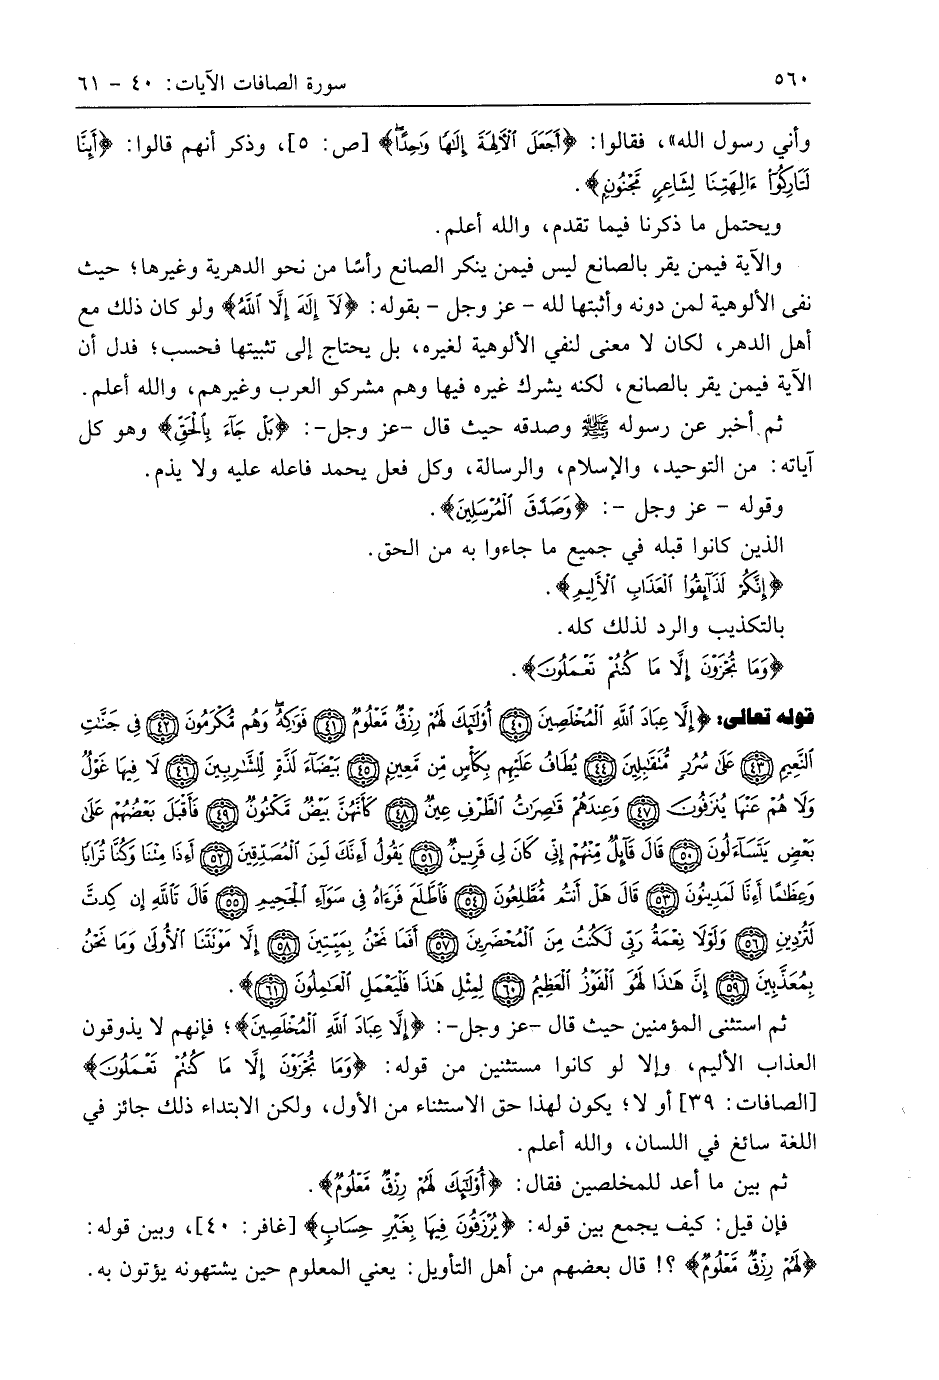 ٥٦٠ سورة الصافات الآيات: ٤٠ - ٦١
وأني رسول الله»، فقالوا: ﴿أَجَعَلَ ٱلْآلِهَةَ إِلَٰهًا وَٰحِدًا﴾ [ص: ٥]، وذكر أنهم قالوا: ﴿أَئِنَّا
لَتَارِكُوٓا۟ ءَالِهَتِنَا لِشَاعِرٍ مَّجْنُونٍ﴾.
ويحتمل ما ذكرنا فيما تقدم، والله أعلم.
والآية فيمن يقر بالصانع ليس فيمن ينكر الصانع رأسًا من نحو الدهرية وغيرها؛ حيث
نفى الألوهية لمن دونه وأثبتها لله - عز وجل - بقوله: ﴿لَآ إِلَٰهَ إِلَّا ٱللَّهُ﴾ ولو كان ذلك مع
أهل الدهر، لكان لا معنى لنفي الألوهية لغيره، بل يحتاج إلى تثبيتها فحسب؛ فدل أن
الآية فيمن يقر بالصانع، لكنه يشرك غيره فيها وهم مشركو العرب وغيرهم، والله أعلم.
ثم أخبر عن رسوله ﷺ وصدقه حيث قال -عز وجل-: ﴿بَلْ جَآءَ بِٱلْحَقِّ﴾ وهو كل
آياته: من التوحيد، والإسلام، والرسالة، وكل فعل يحمد فاعله عليه ولا يذم.
وقوله - عز وجل -: ﴿وَصَدَّقَ ٱلْمُرْسَلِينَ﴾.
الذين كانوا قبله في جميع ما جاءوا به من الحق.
﴿إِنَّكُمْ لَذَآئِقُوا۟ ٱلْعَذَابِ ٱلْأَلِيمِ﴾.
بالتكذيب والرد لذلك كله.
﴿وَمَا تُجْزَوْنَ إِلَّا مَا كُنتُمْ تَعْمَلُونَ﴾.
قوله تعالى: ﴿إِلَّا عِبَادَ ٱللَّهِ ٱلْمُخْلَصِينَ ﴿٤٠﴾ أُو۟لَٰٓئِكَ لَهُمْ رِزْقٌ مَّعْلُومٌ ﴿٤١﴾ فَوَٰكِهُ وَهُم مُّكْرَمُونَ ﴿٤٢﴾ فِى جَنَّٰتِ
ٱلنَّعِيمِ ﴿٤٣﴾ عَلَىٰ سُرُرٍ مُّتَقَٰبِلِينَ ﴿٤٤﴾ يُطَافُ عَلَيْهِم بِكَأْسٍ مِّن مَّعِينٍ ﴿٤٥﴾ بَيْضَآءَ لَذَّةٍ لِّلشَّٰرِبِينَ ﴿٤٦﴾ لَا فِيهَا غَوْلٌ
وَلَا هُمْ عَنْهَا يُنزَفُونَ ﴿٤٧﴾ وَعِندَهُمْ قَٰصِرَٰتُ ٱلطَّرْفِ عِينٌ ﴿٤٨﴾ كَأَنَّهُنَّ بَيْضٌ مَّكْنُونٌ ﴿٤٩﴾ فَأَقْبَلَ بَعْضُهُمْ عَلَىٰ
بَعْضٍ يَتَسَآءَلُونَ ﴿٥٠﴾ قَالَ قَآئِلٌ مِّنْهُمْ إِنِّى كَانَ لِى قَرِينٌ ﴿٥١﴾ يَقُولُ أَءِنَّكَ لَمِنَ ٱلْمُصَدِّقِينَ ﴿٥٢﴾ أَءِذَا مِتْنَا وَكُنَّا تُرَابًا
وَعِظَٰمًا أَءِنَّا لَمَدِينُونَ ﴿٥٣﴾ قَالَ هَلْ أَنتُم مُّطَّلِعُونَ ﴿٥٤﴾ فَٱطَّلَعَ فَرَءَاهُ فِى سَوَآءِ ٱلْجَحِيمِ ﴿٥٥﴾ قَالَ تَٱللَّهِ إِن كِدتَّ
لَتُرْدِينِ ﴿٥٦﴾ وَلَوْلَا نِعْمَةُ رَبِّى لَكُنتُ مِنَ ٱلْمُحْضَرِينَ ﴿٥٧﴾ أَفَمَا نَحْنُ بِمَيِّتِينَ ﴿٥٨﴾ إِلَّا مَوْتَتَنَا ٱلْأُولَىٰ وَمَا نَحْنُ
بِمُعَذَّبِينَ ﴿٥٩﴾ إِنَّ هَٰذَا لَهُوَ ٱلْفَوْزُ ٱلْعَظِيمُ ﴿٦٠﴾ لِمِثْلِ هَٰذَا فَلْيَعْمَلِ ٱلْعَٰمِلُونَ ﴿٦١﴾﴾.
ثم استثنى المؤمنين حيث قال -عز وجل-: ﴿إِلَّا عِبَادَ ٱللَّهِ ٱلْمُخْلَصِينَ﴾؛ فإنهم لا يذوقون
العذاب الأليم، وإلا لو كانوا مستثنين من قوله: ﴿وَمَا تُجْزَوْنَ إِلَّا مَا كُنتُمْ تَعْمَلُونَ﴾
[الصافات: ٣٩] أو لا؛ يكون لهذا حق الاستثناء من الأول، ولكن الابتداء ذلك جائز في
اللغة سائغ في اللسان، والله أعلم.
ثم بين ما أعد للمخلصين فقال: ﴿أُو۟لَٰٓئِكَ لَهُمْ رِزْقٌ مَّعْلُومٌ﴾.
فإن قيل: كيف يجمع بين قوله: ﴿يُرْزَقُونَ فِيهَا بِغَيْرِ حِسَابٍ﴾ [غافر: ٤٠]، وبين قوله:
﴿لَهُمْ رِزْقٌ مَّعْلُومٌ﴾ ؟! قال بعضهم من أهل التأويل: يعني المعلوم حين يشتهونه يؤتون به.